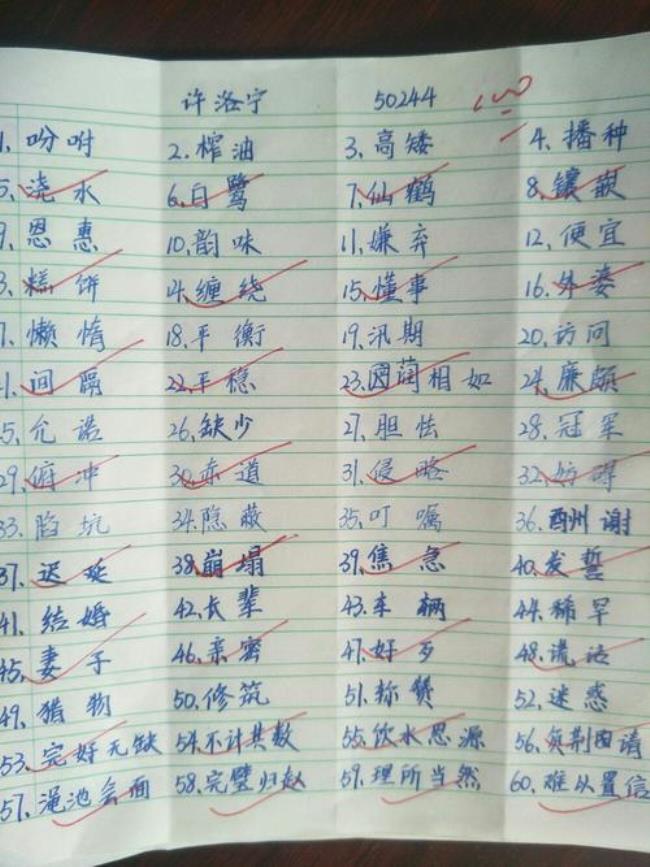 许洛宁 50244 100
1. 吩咐 2. 榨油 3. 高矮 4. 播种
5. 浇水 6. 白鹭 7. 仙鹤 8. 镶嵌
9. 恩惠 10. 韵味 11. 嫌弃 12. 便宜
3. 糕饼 14. 缠绕 15. 懂事 16. 外婆
7. 懒惰 18. 平衡 19. 汛期 20. 访问
21. 间隔 22. 平稳 23. 蔺相如 24. 廉颇
25. 允诺 26. 缺少 27. 胆怯 28. 冠军
29. 俯冲 30. 赤道 31. 侵略 32. 妨碍
33. 陷坑 34. 隐蔽 35. 叮嘱 36. 酬谢
37. 迟延 38. 崩塌 39. 焦急 40. 发誓
41. 结婚 42. 长辈 43. 车辆 44. 稀罕
45. 妻子 46. 亲密 47. 好歹 48. 谎话
49. 猎物 50. 修筑 51. 称赞 52. 迷惑
53. 完好无缺 54. 不计其数 55. 饮水思源 56. 负荆请
57. 渑池会面 58. 完璧归赵 59. 理所当然 60. 难以置信